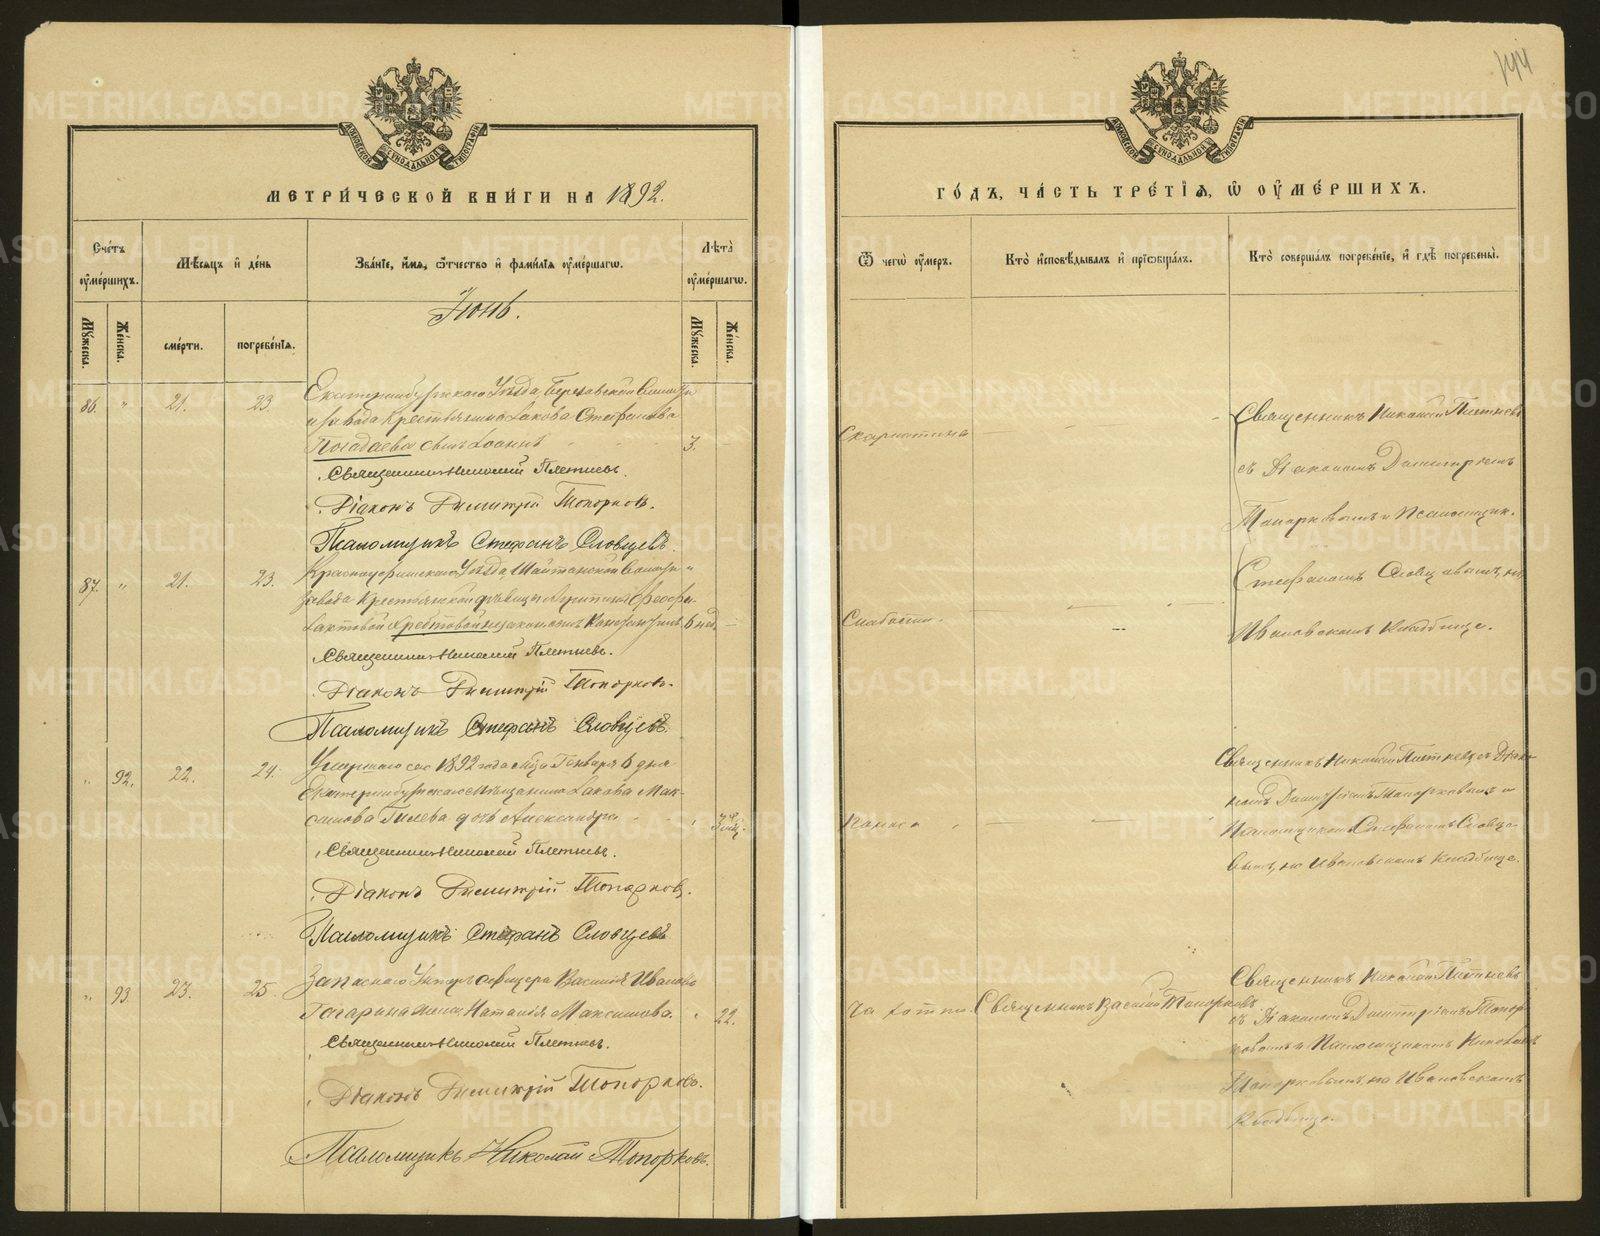 144
МЕТРИ́ЧЕСКОЙ КНИ́ГИ НА 1892.
Сче́тъ ᲂу҆ме́ршихъ.
Мѣ́сяцъ и҆ де́нь
Зва́нїе, и҆́мя, ѻ҆́тчество и҆ фами́лїя ᲂу҆ме́ршагѡ.
Лѣ́та ᲂу҆ме́ршагѡ.
Мꙋ́жеска.
Же́нска.
сме́рти.
погребе́нїѧ.
Мꙋ́жеска.
Же́нска.
Іюнь.
86. " 21. 23.
Екатеринбургскаго Уѣзда, Березовской Волости
и завода Крестьянина Іакова Стефанова
Погадаева сынъ Іоаннъ 3.
Священникъ Николай Плетневъ.
Діаконъ Димитрій Топорковъ.
Псаломщикъ Стефанъ Словцевъ.
87. " 21. 23.
Красноуфимскаго Уѣзда, Шайтанской Волости и
завода Крестьянской дѣвицы
незаконный сынъ 6 нед.
Священникъ Николай Плетневъ.
Діаконъ Димитрій Топорковъ.
Псаломщикъ Стефанъ Словцевъ.
" 92. 22. 24.
Умершаго сего 1892 года м-ца Генваря 6 дня
Екатеринбургскаго мѣщанина Іакова Мак-
симова Гилева дочь Александра
Священникъ Николай Плетневъ.
Діаконъ Димитрій Топорковъ.
Псаломщикъ Стефанъ Словцевъ
" 93 23. 25.
Запаснаго Унтеръ-офицера Василія Иванова
Гагарина жена Наталія Максимова. 22.
Священникъ Николай Плетневъ.
Діаконъ Димитрій Топорковъ.
Псаломщикъ Николай Топорковъ.
ГО́ДЪ, ЧА́СТЬ ТРЕ́ТЇѦ, Ѡ҆ ОУ҆МЕ́РШИХЪ.
Ѿ чегѡ̀ ᲂу҆́меръ.
Кто̀ и҆сповѣ́дывалъ и҆ прїѻбща́лъ.
Кто̀ соверша́лъ погребе́нїе, и҆ гдѣ̀ погребены̀.
Скарлатина
Священникъ Николай Плетневъ
съ Діакономъ Димитріемъ
Топорковымъ и Псаломщик.
Стефаномъ Словцовымъ, на
Ивановскомъ Кладбище.
Слабости.
Поноса
Священникъ Николай Плетневъ съ Діако-
номъ Димитріемъ Топорковымъ и
Псаломщикомъ Стефаномъ Словцо-
вымъ, на Ивановскомъ Кладбище.
Чахотки. Священникъ Василій Топорковъ
Священникъ Николай Плетневъ
съ Діакономъ Димитріемъ Топор-
ковымъ и Псаломщикомъ Николаемъ
Топорковымъ, на Ивановскомъ
Кладбище.
METRIKI.GASO-URAL.RU